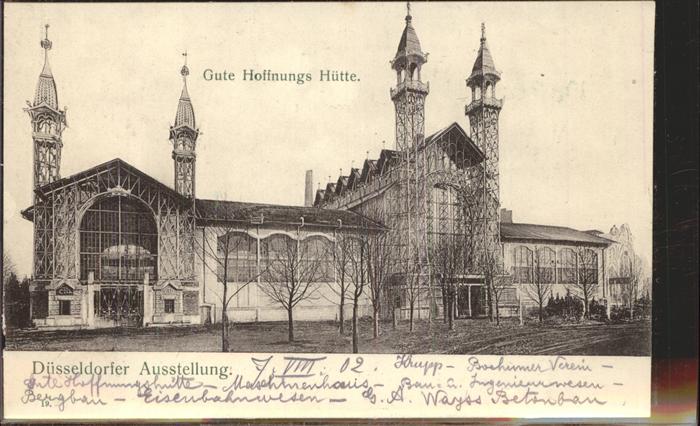 Gute Hoffnungs Hütte.
Düsseldorfer Ausstellung. 7. VIII. 02. Krupp – Bochumer Verein –
Gute Hoffnungshütte – Maschinenhaus – Bau- u. Ingenieurwesen –
Bergbau – Eisenbahnwesen – G. A. Wayss Betonbau
19.